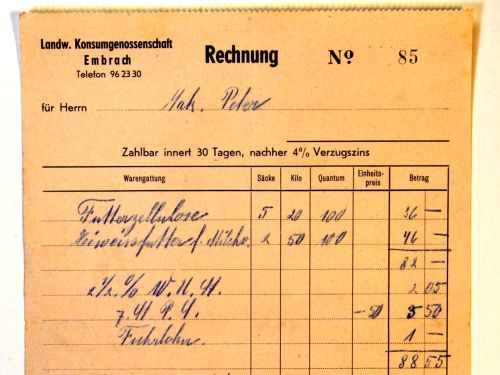 Landw. Konsumgenossenschaft
Embrach
Telefon 96 23 30
Rechnung
Nº 85
für Herrn Jak. Peter
Zahlbar innert 30 Tagen, nachher 4% Verzugszins
Warengattung Säcke Kilo Quantum Einheits-preis Betrag
Futterzellulose 5 20 100 36 —
Eiweissfutter f. Milchv. 2 50 100 46 —
82 —
2½ % W. U. St. 2 05
7 M P. G. —50 3 50
Fuhrlohn. 1 —
88 55